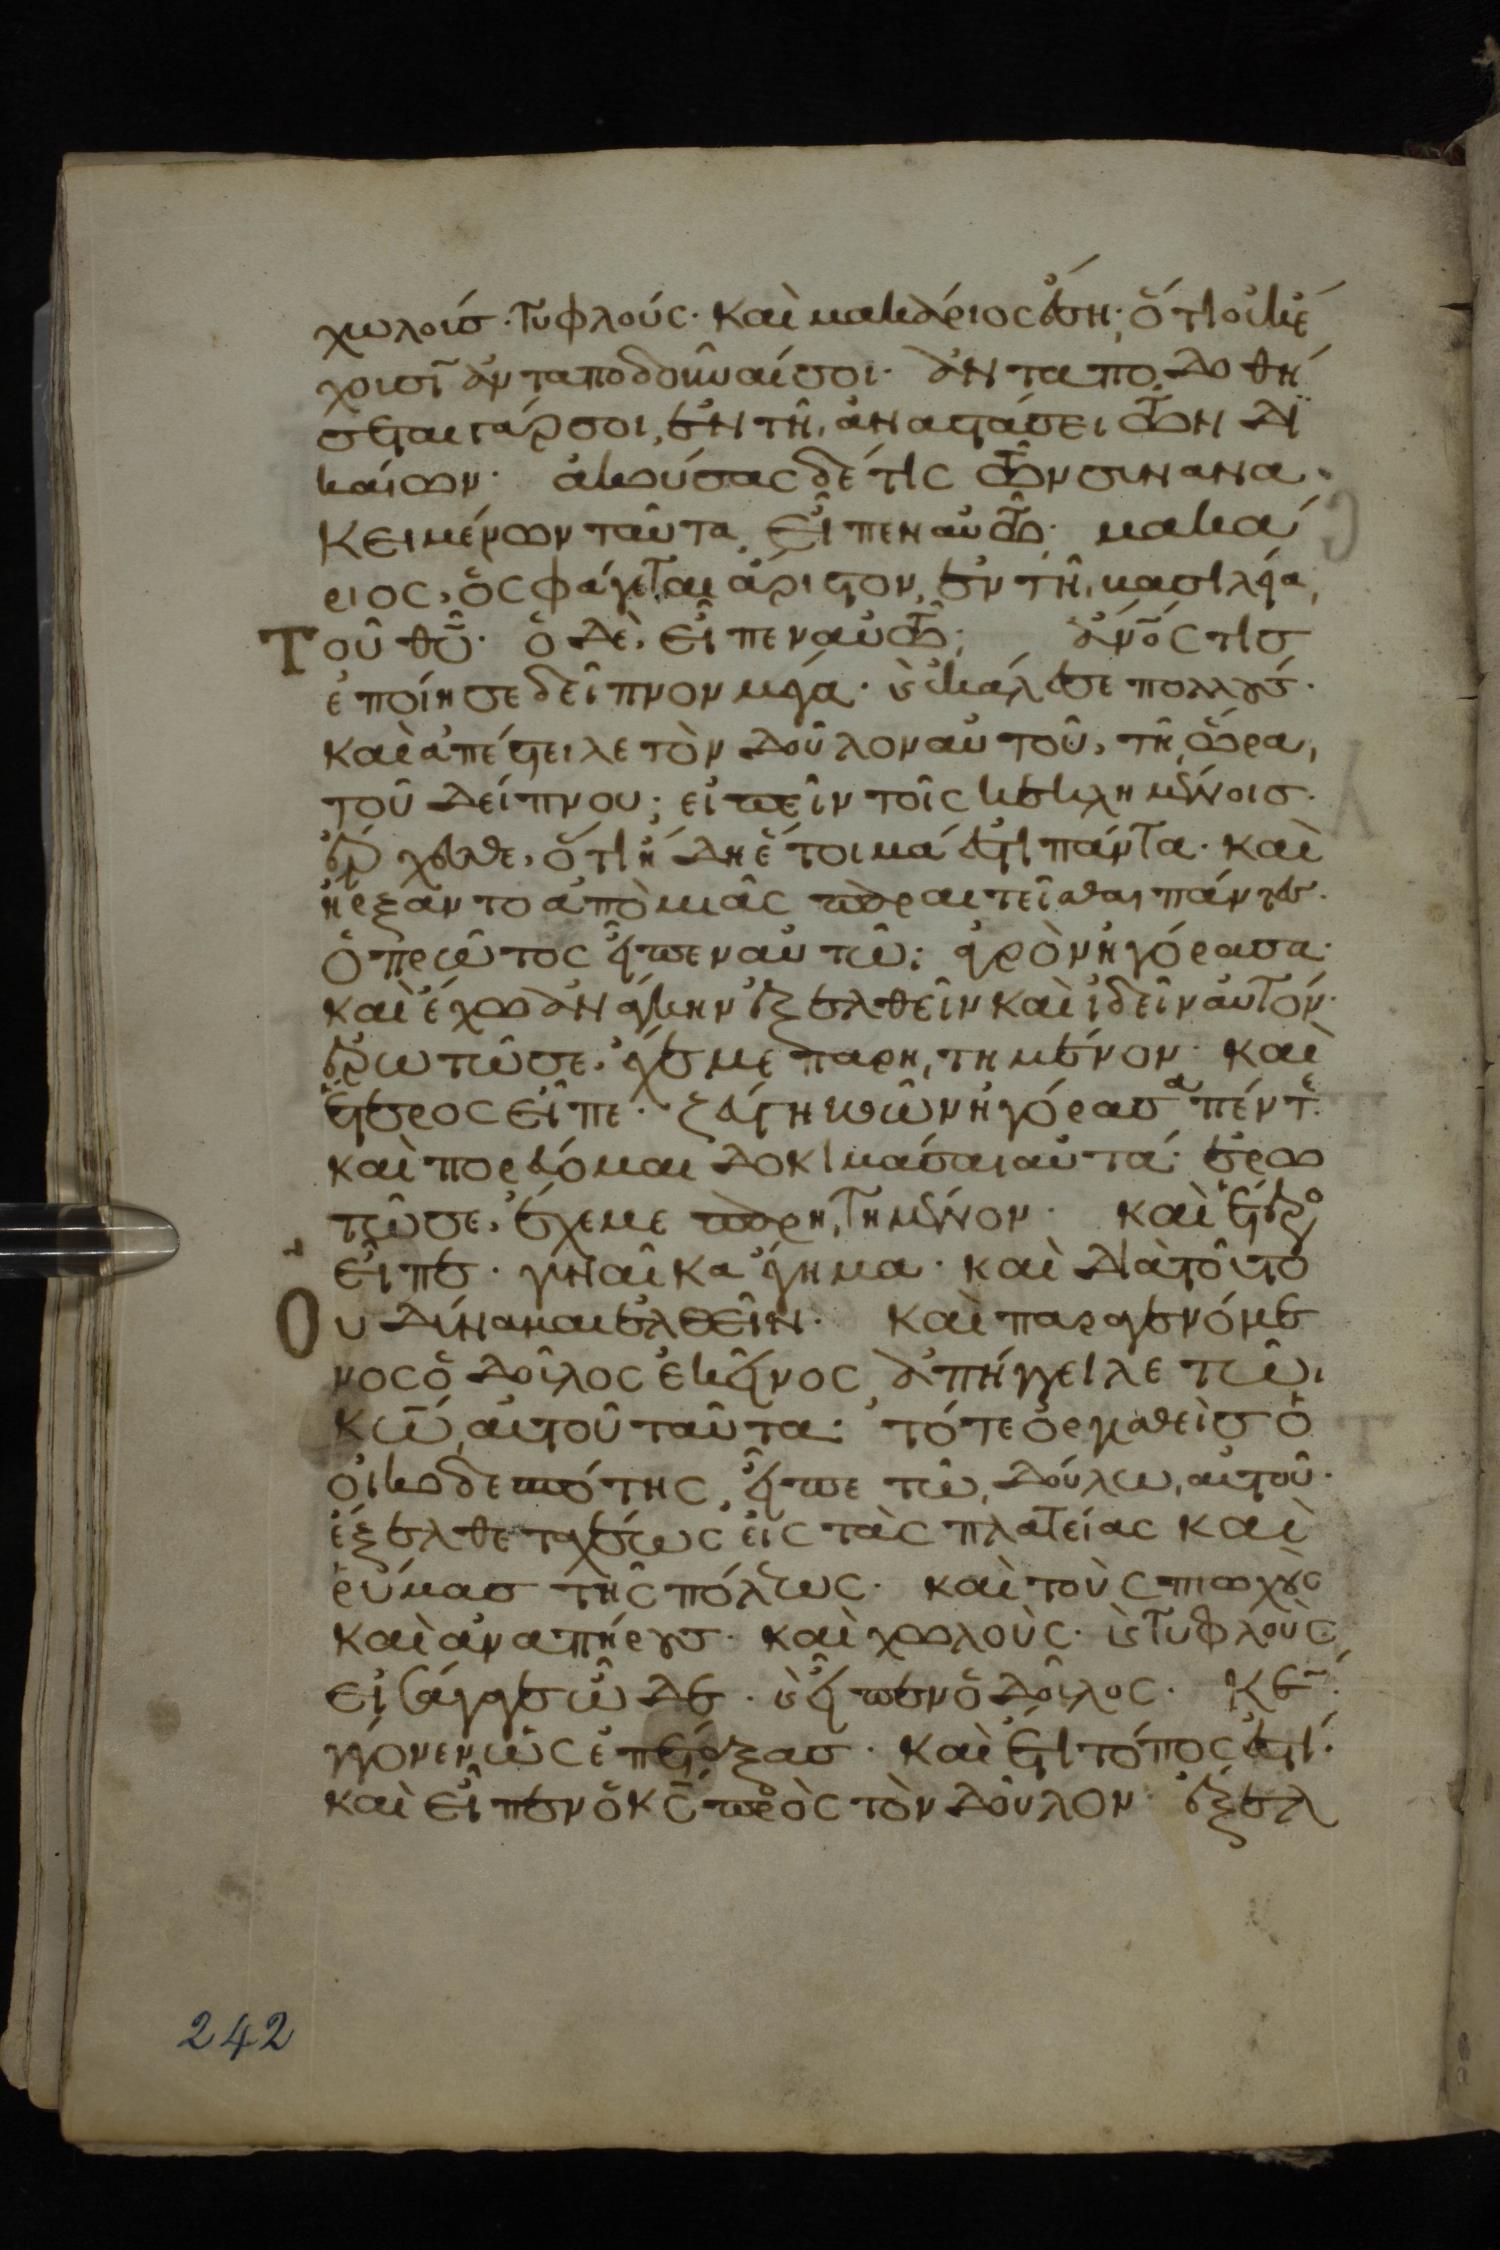 χωλούσ· τυφλούς· καὶ μακάριος ἔση· ὅτι οὐκ ἔ
χουσῖ ἀνταποδοῦναί σοι· ἀνταποδοθή
σεται γάρ σοι, ἐν τῆ ἀναστάσει τῶν δι
καίων· ἀκούσας δέ τις τῶν συνανα
κειμένων ταῦτα, εἶπεν αὐτῶ· μακά
ριος, ὃς φάγεται ἄριστον, ἐν τῆ βασιλεία,
τοῦ θῦ· ὁ δὲ, εἶπεν αὐτῶ; ἄνος τισ
ἐποίησε δεῖπνον μέγα· κ ἐκάλεσε πολλούσ·
καὶ ἀπέστειλε τὸν δοῦλον αὐτοῦ, τῆ ὥρα,
τοῦ δείπνου; εἰπεῖν τοῖς κεκλημένοισ·
ἔρχεσθε, ὅτι ἤδη ἕτοιμά ἐστι πάντα· καὶ
ἤρξαντο ἀπὸ μιᾶς παραιτεῖσθαι πάντεσ·
ὁ πρῶτος εἶπεν αὐτῶ; ἀγρὸν ἠγόρασα·
καὶ ἔχω ἀνάγκην ἐξελθεῖν καὶ ἰδεῖν αὐτόν·
ἐρωτῶ σε, ἔχε με παρητημένον· καὶ
ἕτερος εἶπε· ζεύγη βοῶν ἠγόρασα πέντε·
καὶ πορεύομαι δοκιμάσαι αὐτά· ἐρω
τῶ σε, ἔχε με παρητημένον· καὶ ἕτερος
εἶπε· γυναῖκα ἔγημα· καὶ διατοῦτο
οὐ δύναμαι ἐλθεῖν· καὶ παραγενόμε
νος ὁ δοῦλος ἐκεῖνος, ἀπήγγειλε τῶ
κῶ αὐτοῦ ταῦτα· τότε ὀργισθεὶσ ὁ
οἰκοδεσπότης, εἶπε τῶ δούλω αὐτοῦ·
ἔξελθε ταχέως εἰς τὰς πλατείας καὶ
ρύμασ τῆς πόλεως· καὶ τοὺς πτωχοὺσ
καὶ ἀναπήρουσ· καὶ χωλοὺς· κ τυφλοὺς
εἰσάγαγε ὧδε· κ εἶπεν ὁ δοῦλος· κε
γέγονεν ὡς ἐπέταξασ· καὶ ἔτι τόπος ἐστί·
καὶ εἶπεν ὁ κς πρὸς τὸν δοῦλον· ἔξελ
242